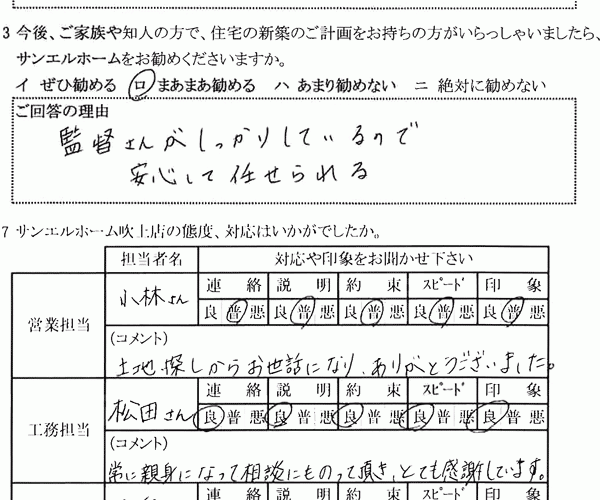 3 今後、ご家族や知人の方で、住宅の新築のご計画をお持ちの方がいらっしゃいましたら、
サンエルホームをお勧めくださいますか。
イ ぜひ勧める ロ まあまあ勧める ハ あまり勧めない ニ 絶対に勧めない
ご回答の理由
監督さんがしっかりしているので
安心して任せられる
7 サンエルホーム吹上店の態度、対応はいかがでしたか。
担当者名 対応や印象をお聞かせ下さい
営業担当 小林さん 連絡 説明 約束 スピード 印象
良 普 悪 良 普 悪 良 普 悪 良 普 悪 良 普 悪
(コメント)
土地探しからお世話になり、ありがとうございました。
工務担当 松田さん 連絡 説明 約束 スピード 印象
良 普 悪 良 普 悪 良 普 悪 良 普 悪 良 普 悪
(コメント)
常に親身になって相談にものって頂き、とても感謝しています。
連絡 説明 約束 スピード 印象